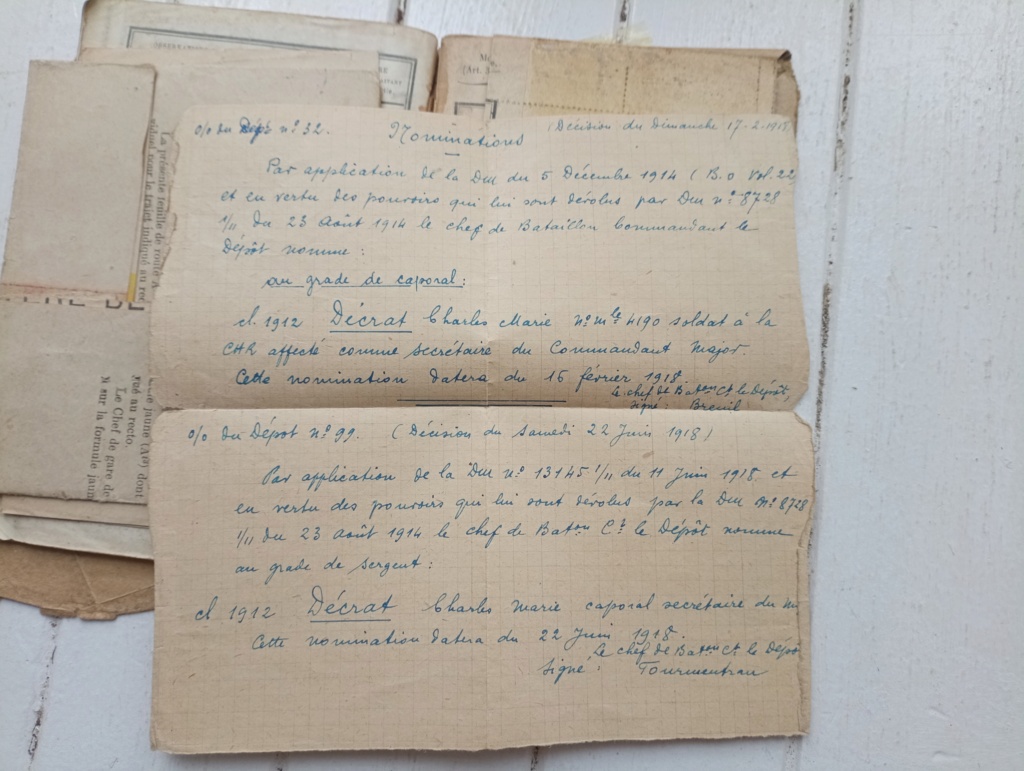 o/o du Dépôt nº 32. Nominations (Décision du Dimanche 17-2-1918
Par application de la DM du 5 Décembre 1914 (B.O Vol. 22
et en vertu des pouvoirs qui lui sont dévolus par DM nº 8728
1/11 du 23 Août 1914 le chef de Bataillon Commandant le
Dépôt nomme :
au grade de caporal :
cl. 1912 Décrat Charles Marie Nº mle 4190 soldat à la
CHR affecté comme secrétaire du Commandant Major.
Cette nomination datera du 16 février 1918.
le chef de Baton Ct le Dépôt,
signé : Breuil
o/o du Dépôt nº 99. (Décision du Samedi 22 Juin 1918)
Par application de la DM nº 13145 1/11 du 11 Juin 1918 et
en vertu des pouvoirs qui lui sont dévolus par la DM nº 8728
1/11 du 23 août 1914 le chef de Baton Ct le Dépôt nomme
au grade de sergent :
cl 1912 Décrat Charles Marie caporal secrétaire du
Cette nomination datera du 22 Juin 1918.
le chef de Baton Ct le Dépô
signé :
La présente feuille de route
au recto.
Le Chef de gare de
N sur la formule jaun